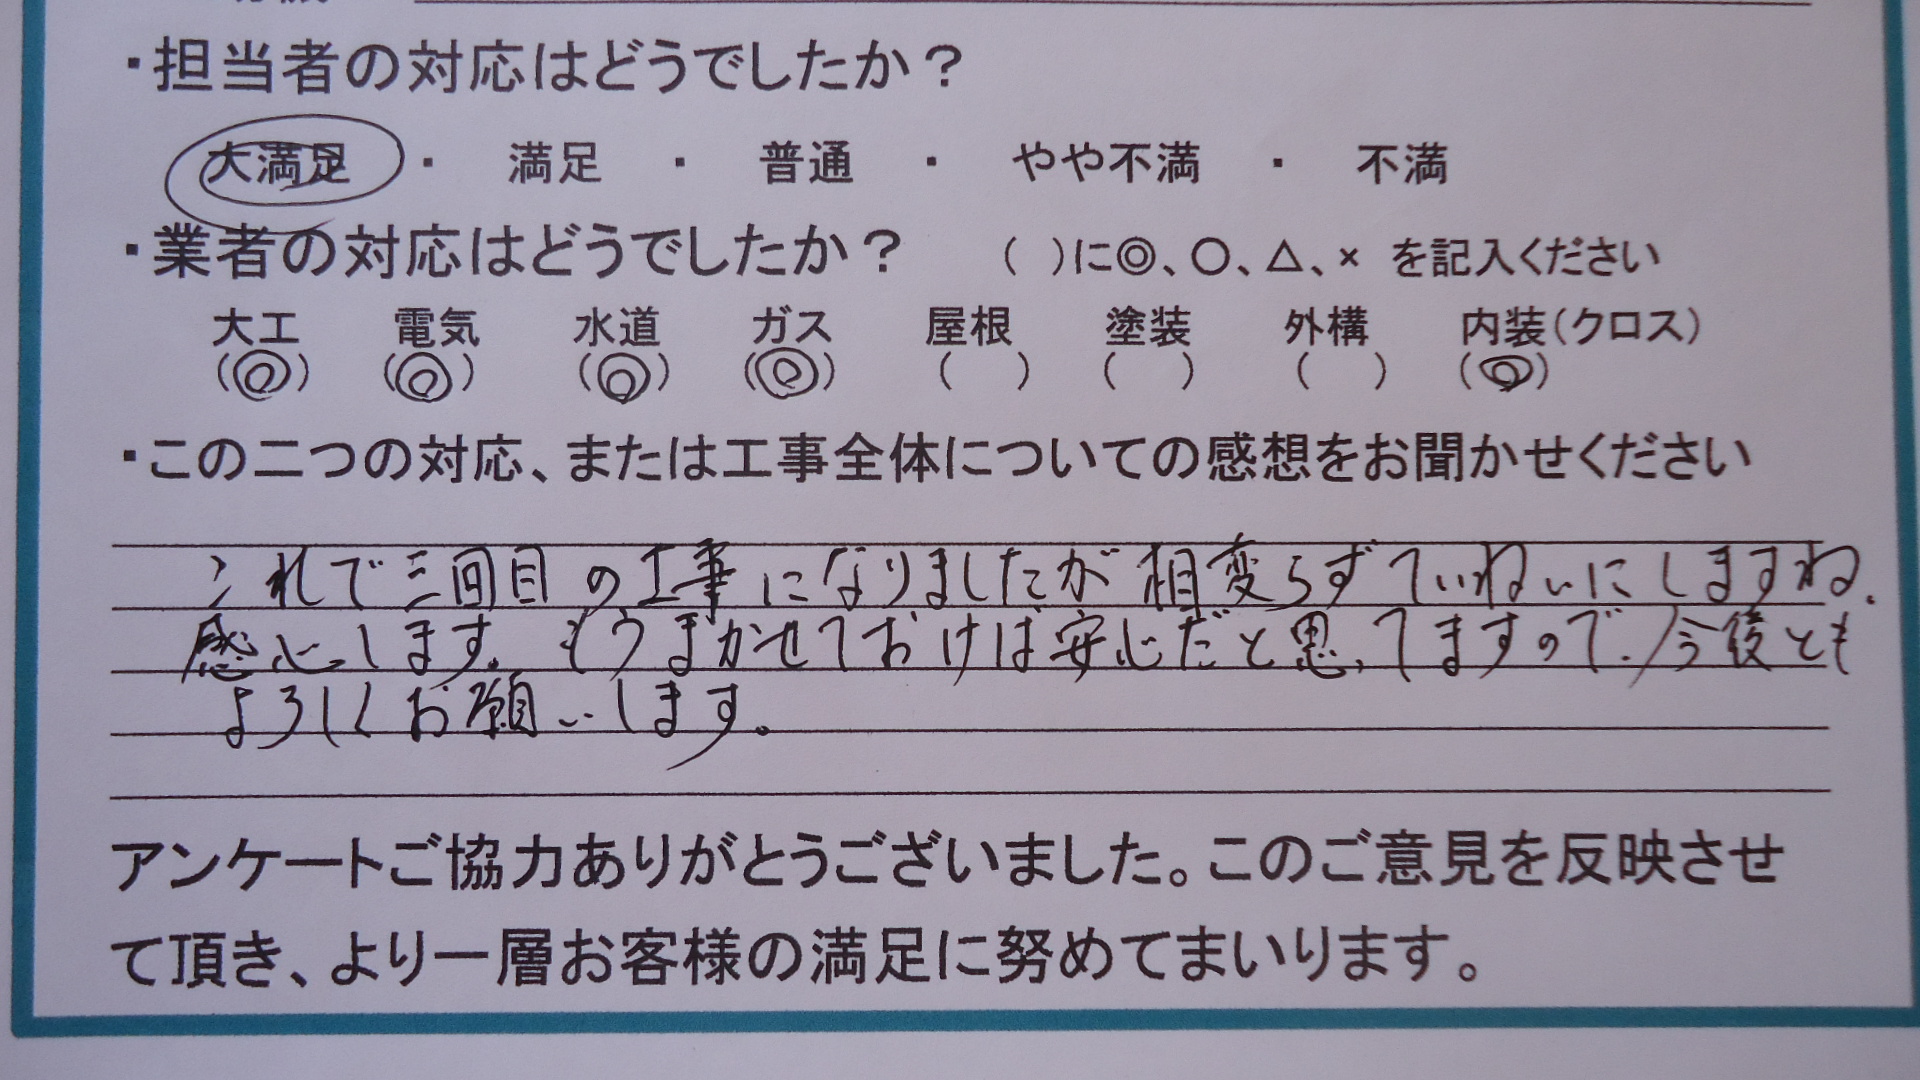 ・担当者の対応はどうでしたか？
大満足 ・ 満足 ・ 普通 ・ やや不満 ・ 不満
・業者の対応はどうでしたか？ （ ）に◎、○、△、× を記入ください
大工 電気 水道 ガス 屋根 塗装 外構 内装（クロス）
（◎） （◎） （◎） （◎） （ ） （ ） （ ） （◎）
・この二つの対応、または工事全体についての感想をお聞かせください
これで三回目の工事になりましたが相変らずていねいにしますね.
感心します。もうまかせておけば安心だと思ってますので、今後とも
よろしくお願いします。
アンケートご協力ありがとうございました。このご意見を反映させ
て頂き、より一層お客様の満足に努めてまいります。